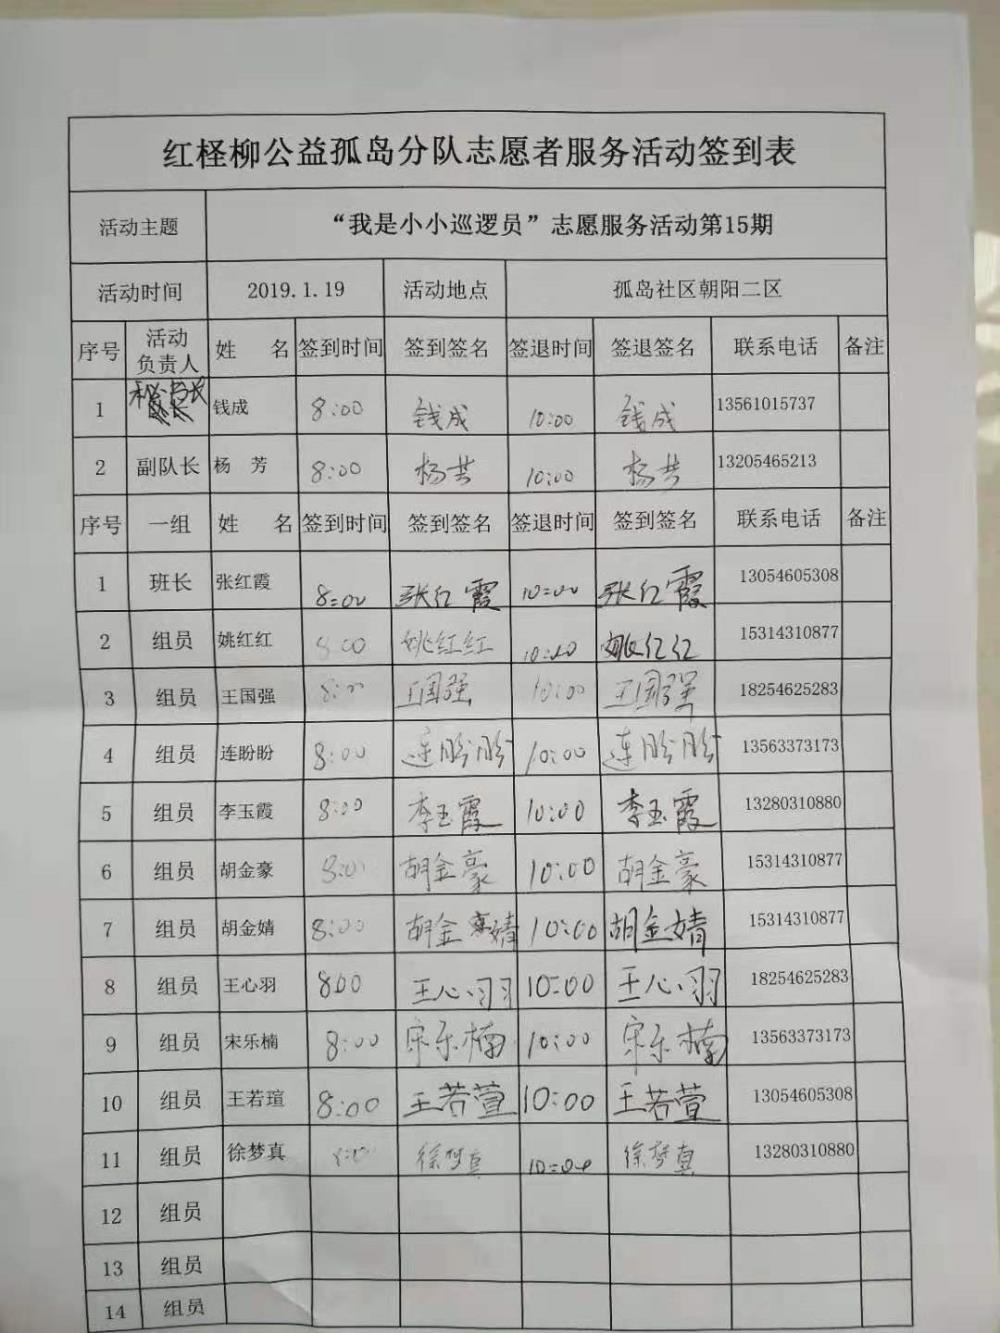 红柽柳公益孤岛分队志愿者服务活动签到表
活动主题 “我是小小巡逻员”志愿服务活动第15期
活动时间 2019.1.19 活动地点 孤岛社区朝阳二区
序号 活动负责人 姓 名 签到时间 签到签名 签退时间 签退签名 联系电话 备注
1 秘书长 钱成 8:00 钱成 10:00 钱成 13561015737
2 副队长 杨 芳 8:00 杨芸 10:00 杨芸 13205465213
序号 一组 姓 名 签到时间 签到签名 签退时间 签到签名 联系电话 备注
1 班长 张红霞 8:00 张红霞 10:00 张红霞 13054605308
2 组员 姚红红 8:00 姚红红 10:00 姚红红 15314310877
3 组员 王国强 8:00 王国强 10:00 王国强 18254625283
4 组员 连盼盼 8:00 连盼盼 10:00 连盼盼 13563373173
5 组员 李玉霞 8:00 李玉霞 10:00 李玉霞 13280310880
6 组员 胡金豪 8:00 胡金豪 10:00 胡金豪 15314310877
7 组员 胡金婧 8:00 胡金婧 10:00 胡金婧 15314310877
8 组员 王心羽 800 王心羽 10:00 王心羽 18254625283
9 组员 宋乐楠 8:00 宋乐楠 10:00 宋乐楠 13563373173
10 组员 王若瑄 8:00 王若萱 10:00 王若萱 13054605308
11 组员 徐梦真 8:00 徐梦真 10:00 徐梦真 13280310880
12 组员
13 组员
14 组员